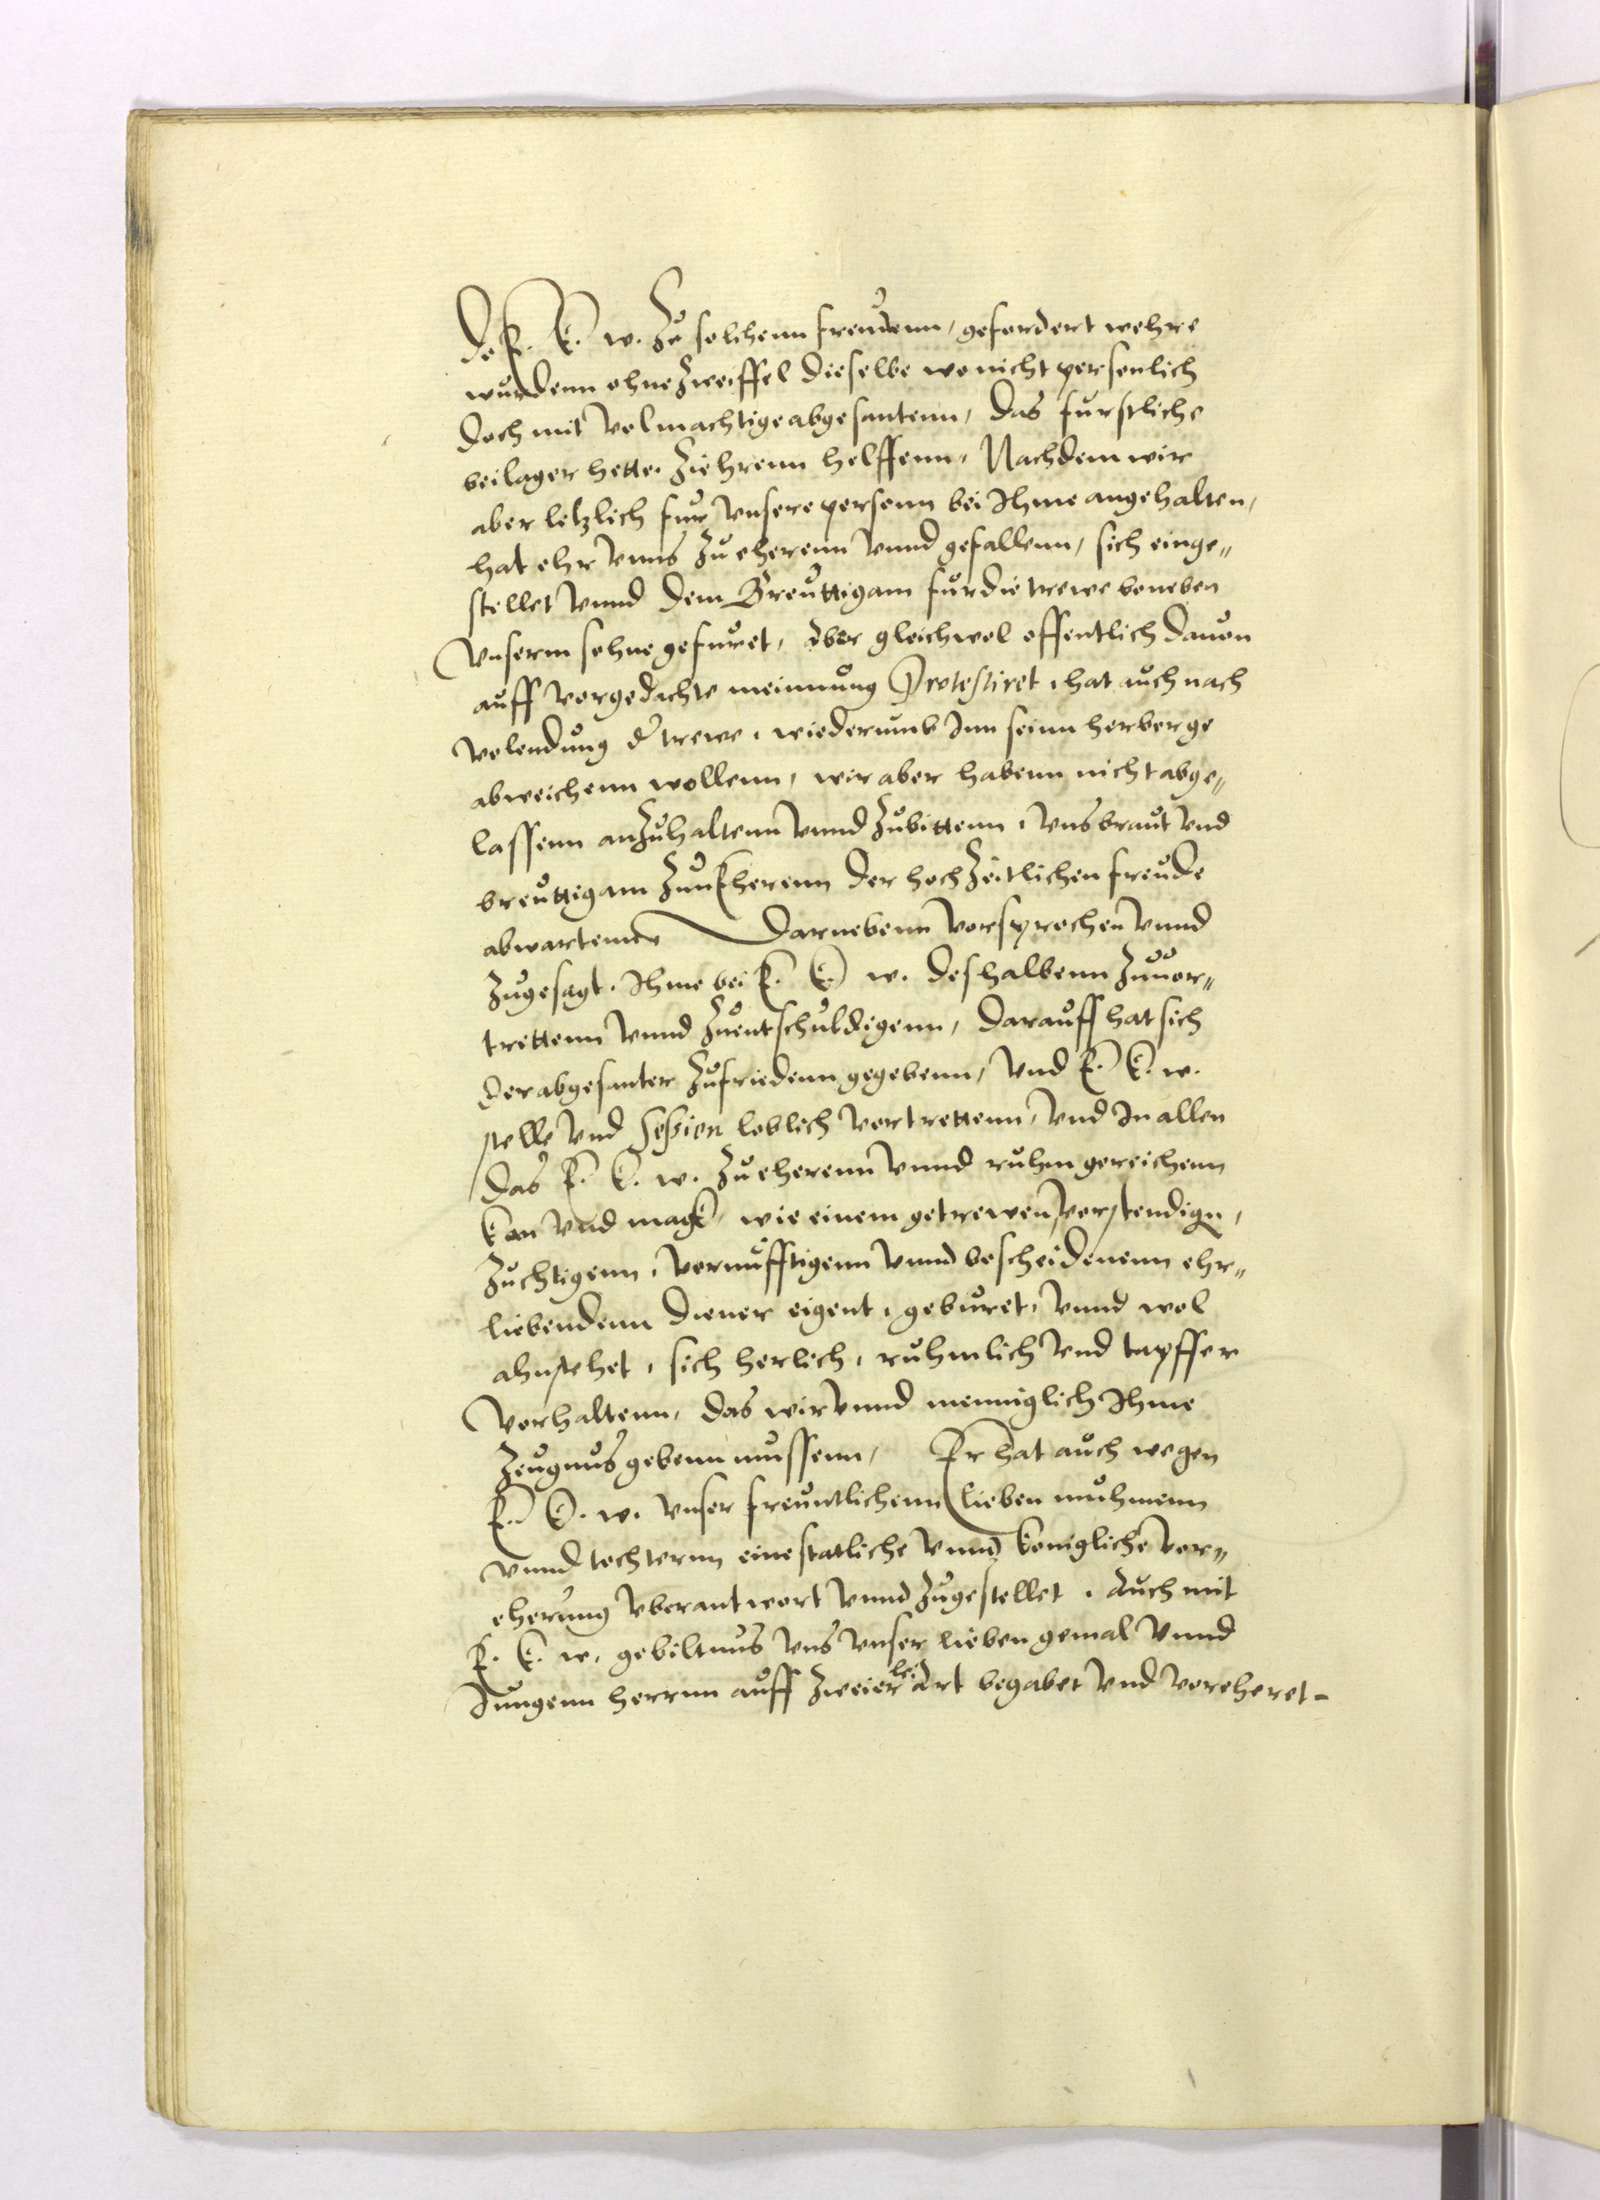 do E. K. w. zu solchenn freudenn, gefordert wehre
wurdenn ohne Zweiffel dieselbe wo nicht personlich
doch mit volmachtige abgesantenn, das furstliche
beilager hette Ziehrenn helffenn, Nachdem wir
aber letzlich fur unsere personn bei Ihme angehalten,
hat ehr unns zu eherenn unnd gefallenn, sich einge-
stellet unnd dem Breuttigam fur die trewe beneben
Unserm sohne gefuret, Aber gleichwol offentlich dauon
auff vorgedachte meinnung Protestiret, hat auch nach
volendung d' trewe, wiederumb Inn seinn herberge
abweichenn wollenn, wir aber habenn nicht abge-
lassenn anzuhaltenn unnd zubittenn, uns braut und
breuttigam zun Eherenn der hochzeitlichen freude
abwartenn Darnebenn vorsprochen unnd
zugesagt, Ihme bei E. K. w. deshalbenn zuuor-
trettenn unnd zuentschuldigenn, Darauff hat sich
der abgesanter zufriedenn gegebenn, Und E. K. w.
stelle und Session loblich vortrettenn, Und In allen
das E. K. w. zu eherenn unnd ruhm gereichenn
kan und magk, wie einem getrewen vorstendign,
zuchtigenn, vernufftigenn unnd bescheidenenn ehr-
liebendenn diener eigent, geburet, unnd wol
ahnstehet, sich herlich, ruhmlich und tapffer
vorhaltenn, das wir unnd menniglich Ihme
zeugnus gebenn mussenn, Er hat auch wegen
E. K. w. unser freuntlichenn lieben muhmenn
unnd tochternn eine statliche unnd konigliche vor-
eherung uberantwort unnd zugestellet, Auch mit
E. K. w. gebiltnus uns unser lieben gemal unnd
Jungenn herrnn auff zweierlei Art begabet und voreheret -